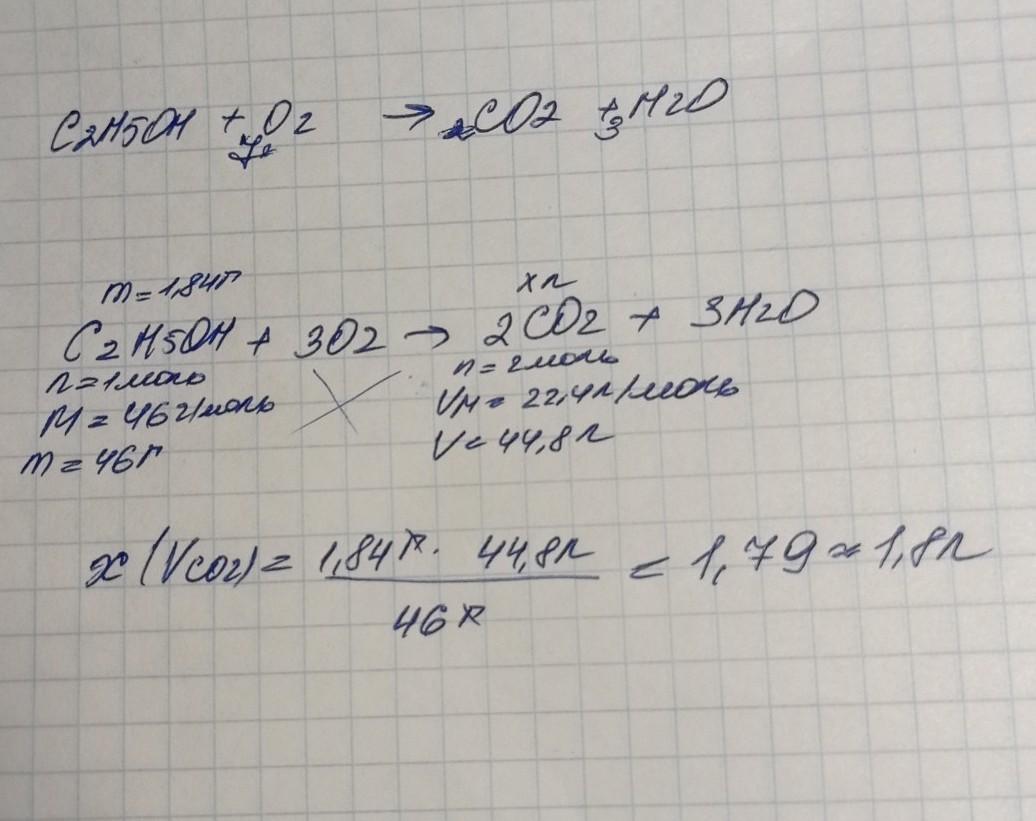 C2H5OH + O2 → 2CO2 + 3H2O
7
m = 1,84г
x л
C2H5OH + 3O2 → 2CO2 + 3H2O
n = 1 моль n = 2 моль
M = 46 г/моль VM = 22,4 л/моль
m = 46г V = 44,8 л
x (VCO2) = 1,84 г · 44,8 л / 46 г = 1,79 ≈ 1,8 л